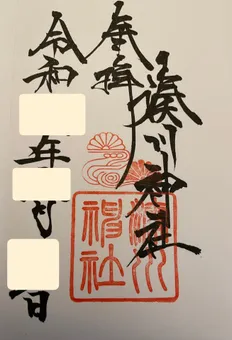 湊川神社
奉拝
令和 年 月 日
湊川
神社